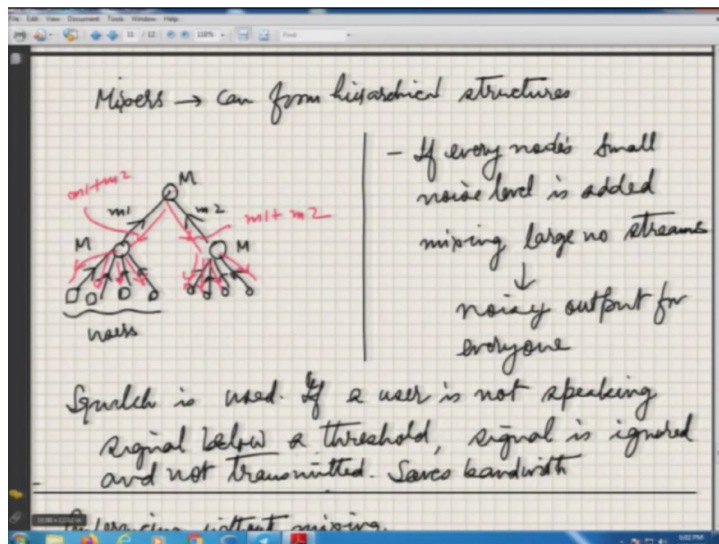 File Edit View Document Tools Window Help
11 / 12
118%
Find
Mixers → can from hierarchical structures
M
m1+m2
m1
m2
m1+m2
M
M
users
- If every node's small
noise level is added
mixing large no streams
↓
noisy output for
everyone
Squelch is used. If a user is not speaking
signal below a threshold, signal is ignored
and not transmitted. Saves bandwidth
without mixing.
5:02 PM